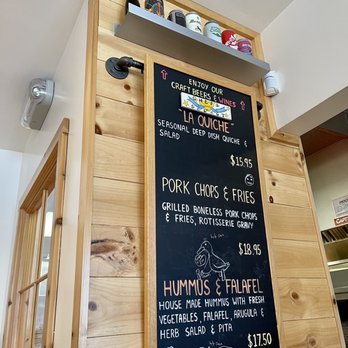 ENJOY OUR
CRAFT BEERS & WINES
LA QUICHE
SEASONAL DEEP DISH QUICHE &
SALAD
$15.95
PORK CHOPS & FRIES
GRILLED BONELESS PORK CHOPS
& FRIES, ROTISSERIE GRAVY
$18.95
HUMMUS & FALAFEL
HOUSE MADE HUMMUS WITH FRESH
VEGETABLES, FALAFEL, ARUGULA &
HERB SALAD & PITA
$17.50